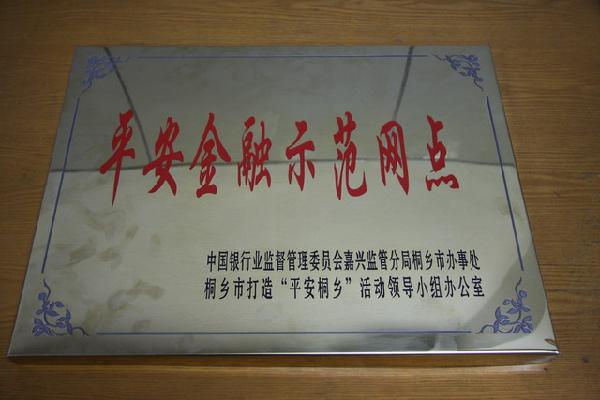 平安金融示范网点
中国银行业监督管理委员会嘉兴监管分局桐乡市办事处
桐乡市打造“平安桐乡”活动领导小组办公室